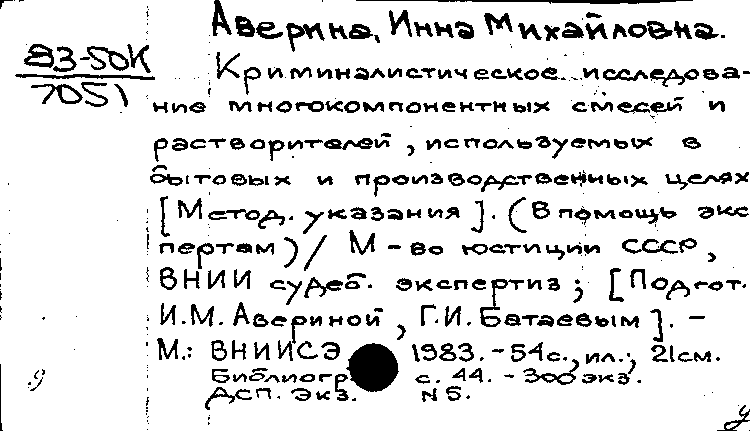 Аверина, Инна Михайловна.
83-50К
7051
Криминалистическое исследова-
ние многокомпонентных смесей и
растворителей, используемых в
бытовых и производственных целях
[Метод. указания]. (В помощь экс
пертам) / М-во юстиции СССР,
ВНИИ судеб. экспертиз; [Подгот.
И.М. Авериной, Г.И. Батаевым]. –
М.: ВНИИСЭ 1983. - 54 с., ил.; 21 см.
Библиогр. с. 44. - 300 экз.
ДСП. Экз. N 5.
g
у